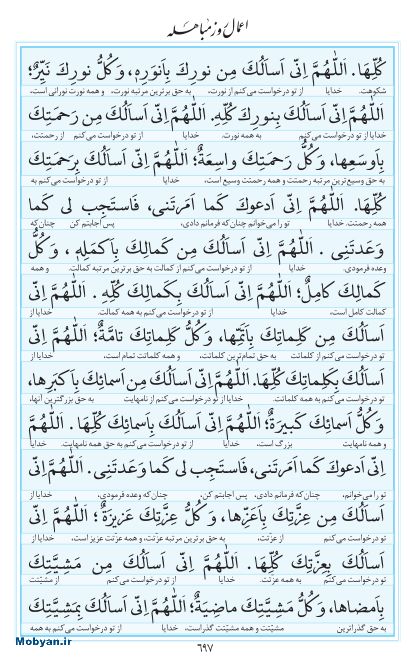 اعمال روز مباهله
کُلِّهَا. اَللّٰهُمَّ اِنّی اَسأَلُکَ مِن نورِکَ بِاَنوَرِهِ، وَکُلُّ نورِکَ نَیِّرٌ؛
شکوهت. خدایا از تو درخواست می‌کنم از نورت، به حق برترین مرتبه نورت، و همه نورت نورانی است،
اَللّٰهُمَّ اِنّی اَسأَلُکَ بِنورِکَ کُلِّهِ. اَللّٰهُمَّ اِنّی اَسأَلُکَ مِن رَحمَتِکَ
خدایا از تو درخواست می‌کنم به همه نورت. خدایا از تو درخواست می‌کنم از رحمتت،
بِاَوسَعِها، وَکُلُّ رَحمَتِکَ واسِعَةٌ؛ اَللّٰهُمَّ اِنّی اَسأَلُکَ بِرَحمَتِکَ
به حق وسیع‌ترین مرتبه رحمتت و همه رحمتت وسیع است، خدایا از تو درخواست می‌کنم به
کُلِّهَا. اَللّٰهُمَّ اِنّی اَدعوکَ کَما اَمَرتَنی، فَاستَجِب لی کَما
همه رحمتت. خدایا تو را می‌خوانم چنان‌که فرمانم دادی، پس اجابتم کن چنان‌که
وَعَدتَنی. اَللّٰهُمَّ اِنّی اَسأَلُکَ مِن کَمالِکَ بِاَکمَلِهِ، وَکُلُّ
وعده فرمودی. خدایا از تو درخواست می‌کنم از کمالت به حق برترین مرتبه کمالت. و همه
کَمالِکَ کامِلٌ؛ اَللّٰهُمَّ اِنّی اَسأَلُکَ بِکَمالِکَ کُلِّهِ. اَللّٰهُمَّ اِنّی
کمالت کامل است، خدایا از تو درخواست می‌کنم به همه کمالت. خدایا از
اَسأَلُکَ مِن کَلِماتِکَ بِاَتَمِّها، وَکُلُّ کَلِماتِکَ تامَّةٌ؛ اَللّٰهُمَّ اِنّی
تو درخواست می‌کنم از کلماتت به حق تمام‌ترین کلماتت، و همه کلماتت تمام است، خدایا از
اَسأَلُکَ بِکَلِماتِکَ کُلِّهَا. اَللّٰهُمَّ اِنّی اَسأَلُکَ مِن اَسمائِکَ بِاَکبَرِها،
تو درخواست می‌کنم به همه کلماتت. خدایا از تو درخواست می‌کنم از نامهایت به حق بزرگترین آنها،
وَکُلُّ اَسمائِکَ کَبیرَةٌ؛ اَللّٰهُمَّ اِنّی اَسأَلُکَ بِاَسمائِکَ کُلِّها. اَللّٰهُمَّ
و همه نامهایت بزرگ است، خدایا از تو درخواست می‌کنم به حق همه نامهایت. خدایا
اِنّی اَدعوکَ کَما اَمَرتَنی، فَاستَجِب لی کَما وَعَدتَنی. اَللّٰهُمَّ اِنّی
تو را می‌خوانم، چنان‌که فرمانم دادی، پس اجابتم کن، چنان‌که وعده فرمودی، خدایا از
اَسأَلُکَ مِن عِزَّتِکَ بِاَعَزِّها، وَکُلُّ عِزَّتِکَ عَزیزَةٌ؛ اَللّٰهُمَّ اِنّی
تو درخواست می‌کنم از عزّتت، به حق برترین مرتبه عزّتت، و همه عزّتت عزیز است، خدایا از
اَسأَلُکَ بِعِزَّتِکَ کُلِّهَا. اَللّٰهُمَّ اِنّی اَسأَلُکَ مِن مَشِیَّتِکَ
تو درخواست می‌کنم به همه عزّتت. خدایا از تو درخواست می‌کنم از مشیّتت
بِاَمضاها، وَکُلُّ مَشِیَّتِکَ ماضِیَةٌ؛ اَللّٰهُمَّ اِنّی اَسأَلُکَ بِمَشِیَّتِکَ
به حق گذراترین مشیّتت و همه مشیّتت گذراست، خدایا از تو درخواست می‌کنم به همه
۶۹۷
Mobyan.ir